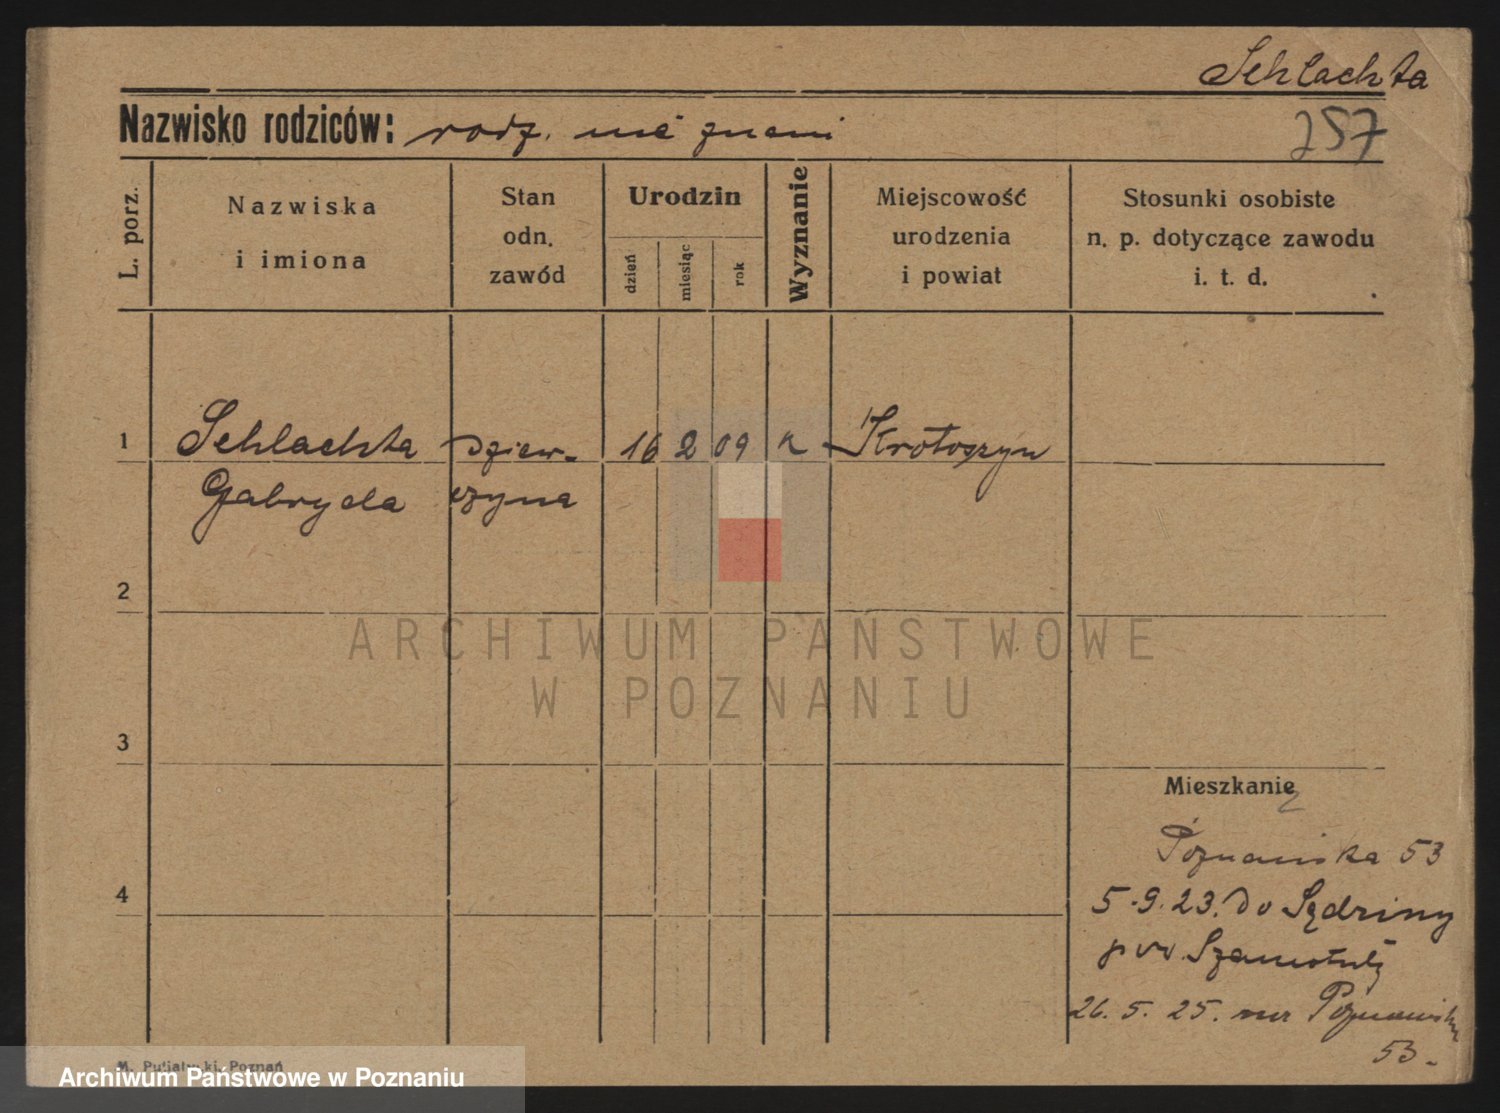 Schlachta
Nazwisko rodziców: rodz. nie znani
257
L. porz.
Nazwiska
i imiona
Stan
odn.
zawód
Urodzin
dzień
miesiąc
rok
Wyznanie
Miejscowość
urodzenia
i powiat
Stosunki osobiste
n. p. dotyczące zawodu
i. t. d.
1 Schlachta dziew- 16 2 09 k Krotoszyn
Gabryela czyna
2
ARCHIWUM PAŃSTWOWE
W POZNANIU
3
Mieszkanie
Poznańska 53
4
5.9.23. do Sędziny
pow. Szamotuły
26. 5. 25. Poznańska
53.
M. Putiatycki, Poznań
Archiwum Państwowe w Poznaniu